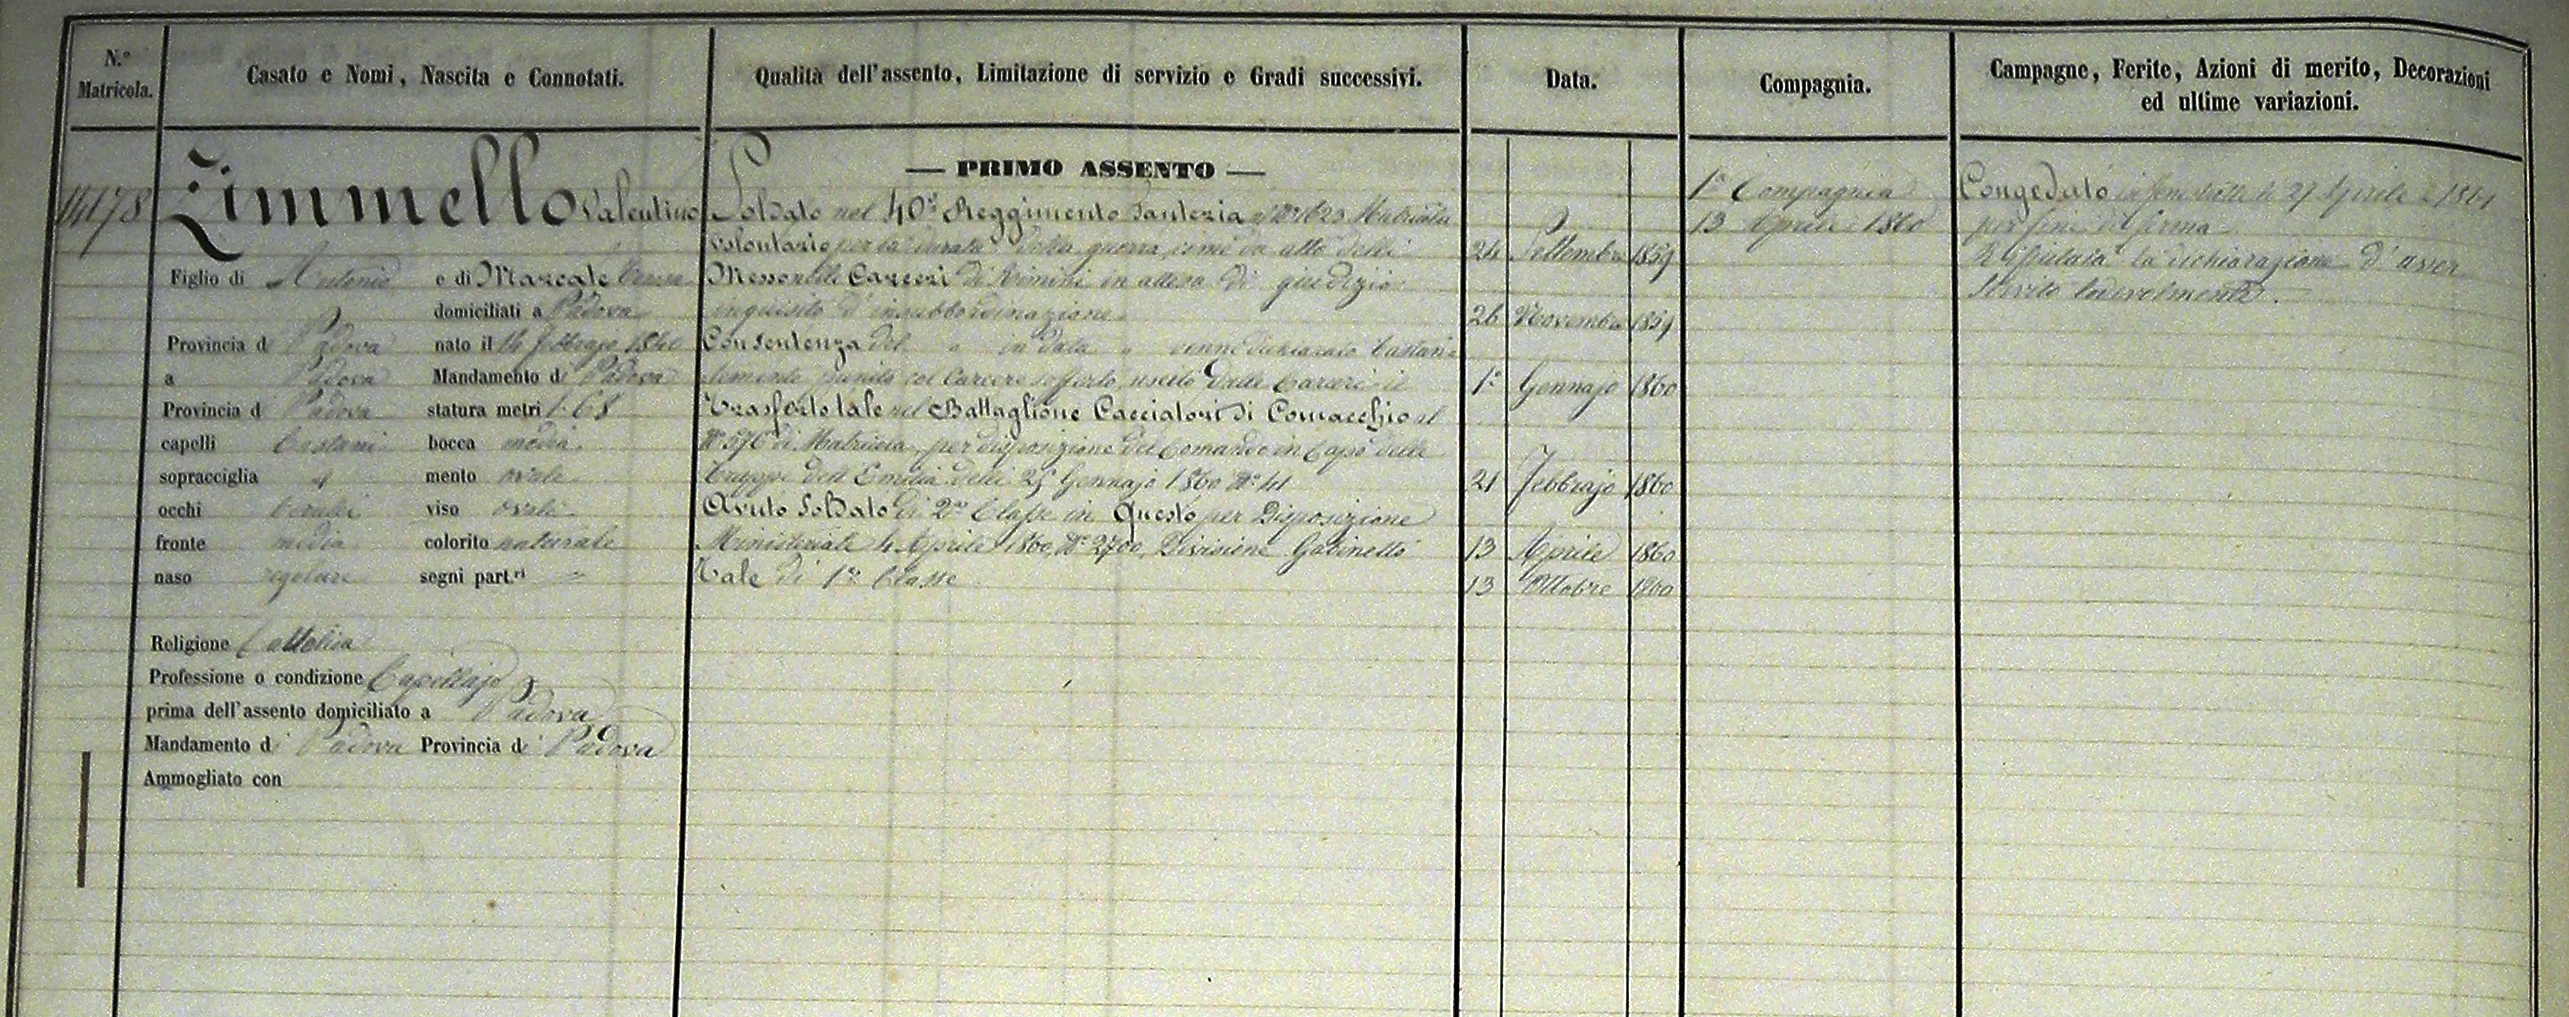 N.° Matricola.
Casato e Nomi, Nascita e Connotati.
Qualità dell'assento, Limitazione di servizio e Gradi successivi.
Data.
Compagnia.
Campagne, Ferite, Azioni di merito, Decorazioni
ed ultime variazioni.
14178
Zimmello Valentino
Figlio di Antonio e di Marcale
domiciliati a Padova
Provincia di Padova nato il 14 Febbrajo 1840
a Padova Mandamento di Padova
Provincia di Padova statura metri 1.68
capelli Castani bocca media
sopracciglia " mento ovale
occhi Cerulei viso ovale
fronte media colorito naturale
naso regolare segni part.ri "
Religione Cattolica
Professione o condizione Capellajo
prima dell'assento domiciliato a Padova
Mandamento di Padova Provincia di Padova
Ammogliato con
— PRIMO ASSENTO —
Soldato nel 40° Reggimento Fanteria al N° 1623 Matricola
volontario per la durata della guerra, come da atto delli 24 Settembre 1859
Messo nelle Carceri di Rimini in attesa di giudizio
inquisito d'insubbordinazione 26 Novembre 1859
Con sentenza del " in data " venne dichiarato bastan-
temente punito col Carcere sofferto, uscito dalle Carceri il 1° Gennajo 1860
Trasferto tale nel Battaglione Cacciatori di Comacchio al
N° 576 di Matricola, per disposizione del Comando in Capo delle
truppe dell'Emilia delli 25 Gennajo 1860 N° 41 21 Febbrajo 1860
Avuto Soldato di 2a Classe in Questo per Disposizione
Ministeriale 4 Aprile 1860, N° 2700, Divisione Gabinetto 13 Aprile 1860
Tale di 1a Classe 13 Ottobre 1860
1a Compagnia
13 Aprile 1860
Congedato li 27 Aprile 1861
per fine di ferma
Rifiutata la dichiarazione d'aver
servito lodevolmente.